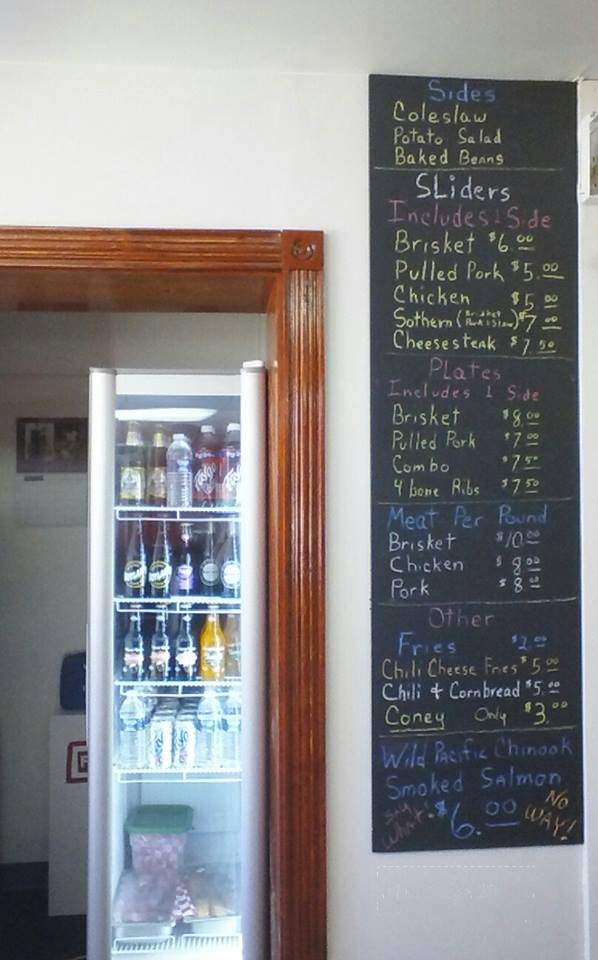 Sides
Coleslaw
Potato Salad
Baked Beans
SLiders
Includes 1 Side
Brisket $6.00
Pulled Pork $5.00
Chicken $5.00
Sothern (Brisket Pork & Slaw) $7.00
Cheesesteak $7.50
Plates
Includes 1 Side
Brisket $8.00
Pulled Pork $7.00
Combo $7.50
4 bone Ribs $7.50
Meat Per Pound
Brisket $10.00
Chicken $8.00
Pork $8.00
Other
Fries $2.00
Chili Cheese Fries $5.00
Chili & Cornbread $5.00
Coney Only $3.00
Wild Pacific Chinook
Smoked Salmon
Say What! $6.00 No WAY!